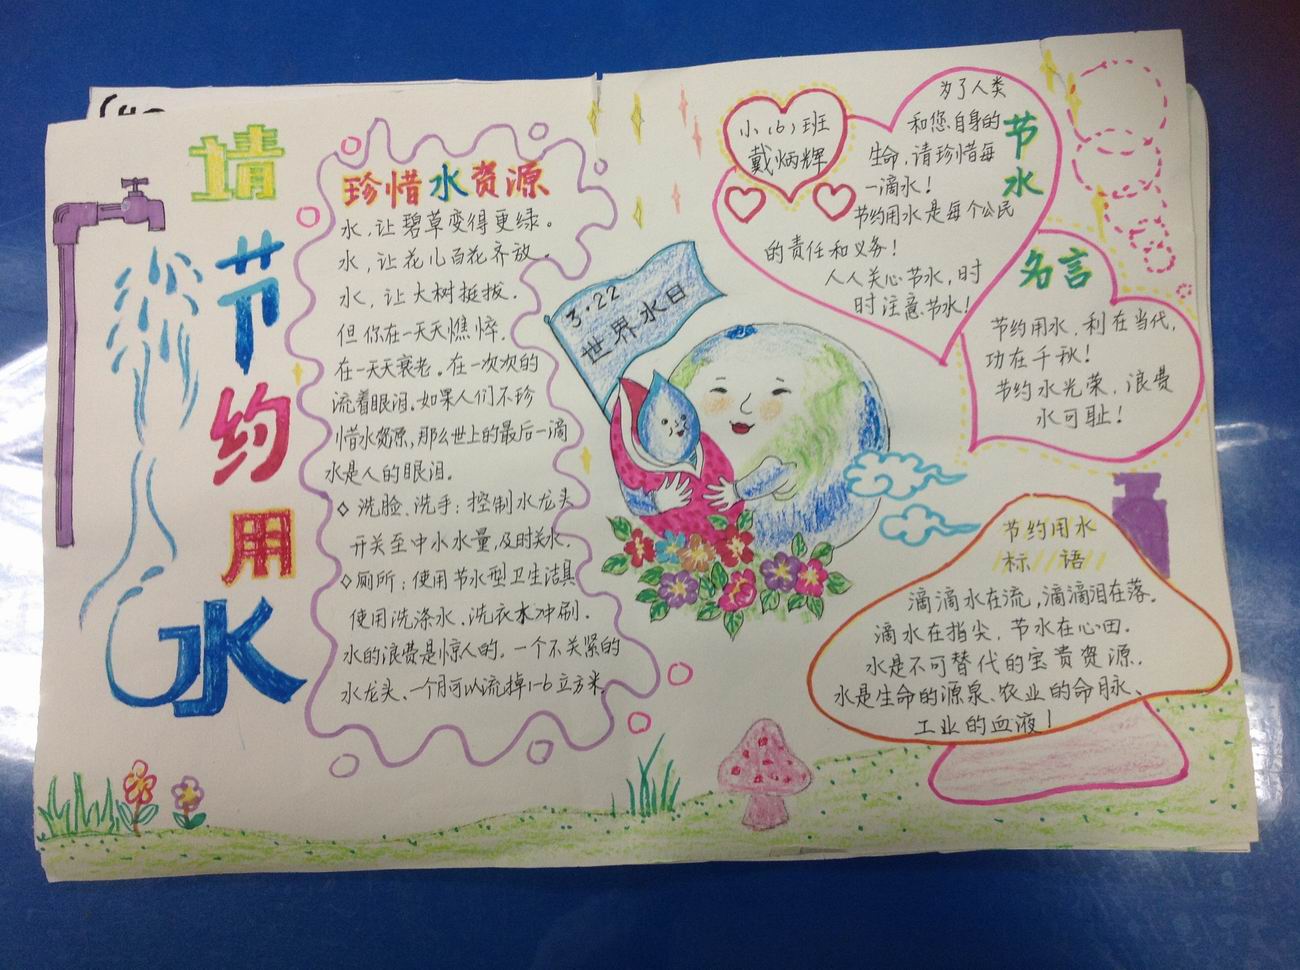 请
节
约
用
水
珍惜水资源
水，让碧草变得更绿。
水，让花儿百花齐放。
水，让大树挺拔．
但你在一天天憔悴．
在一天天衰老。在一次次的
流着眼泪。如果人们不珍
惜水资源，那么世上的最后一滴
水是人的眼泪。
◇ 洗脸、洗手：控制水龙头
开关至中小水量，及时关水．
◇厕所：使用节水型卫生洁具
使用洗涤水、洗衣水冲刷．
水的浪费是惊人的．一个不关紧的
水龙头、一个月可以流掉1-6立方米．
3·22
世界水日
小(6)班
戴炳辉
节水
为了人类
和您自身的
生命，请珍惜每
一滴水！
节约用水是每个公民
的责任和义务！
人人关心节水，时
时注意节水！
名言
节约用水，利在当代，
功在千秋！
节约水光荣，浪费
水可耻！
节约用水
标语
滴滴水在流，滴滴泪在落．
滴水在指尖，节水在心田．
水是不可替代的宝贵资源．
水是生命的源泉、农业的命脉、
工业的血液！